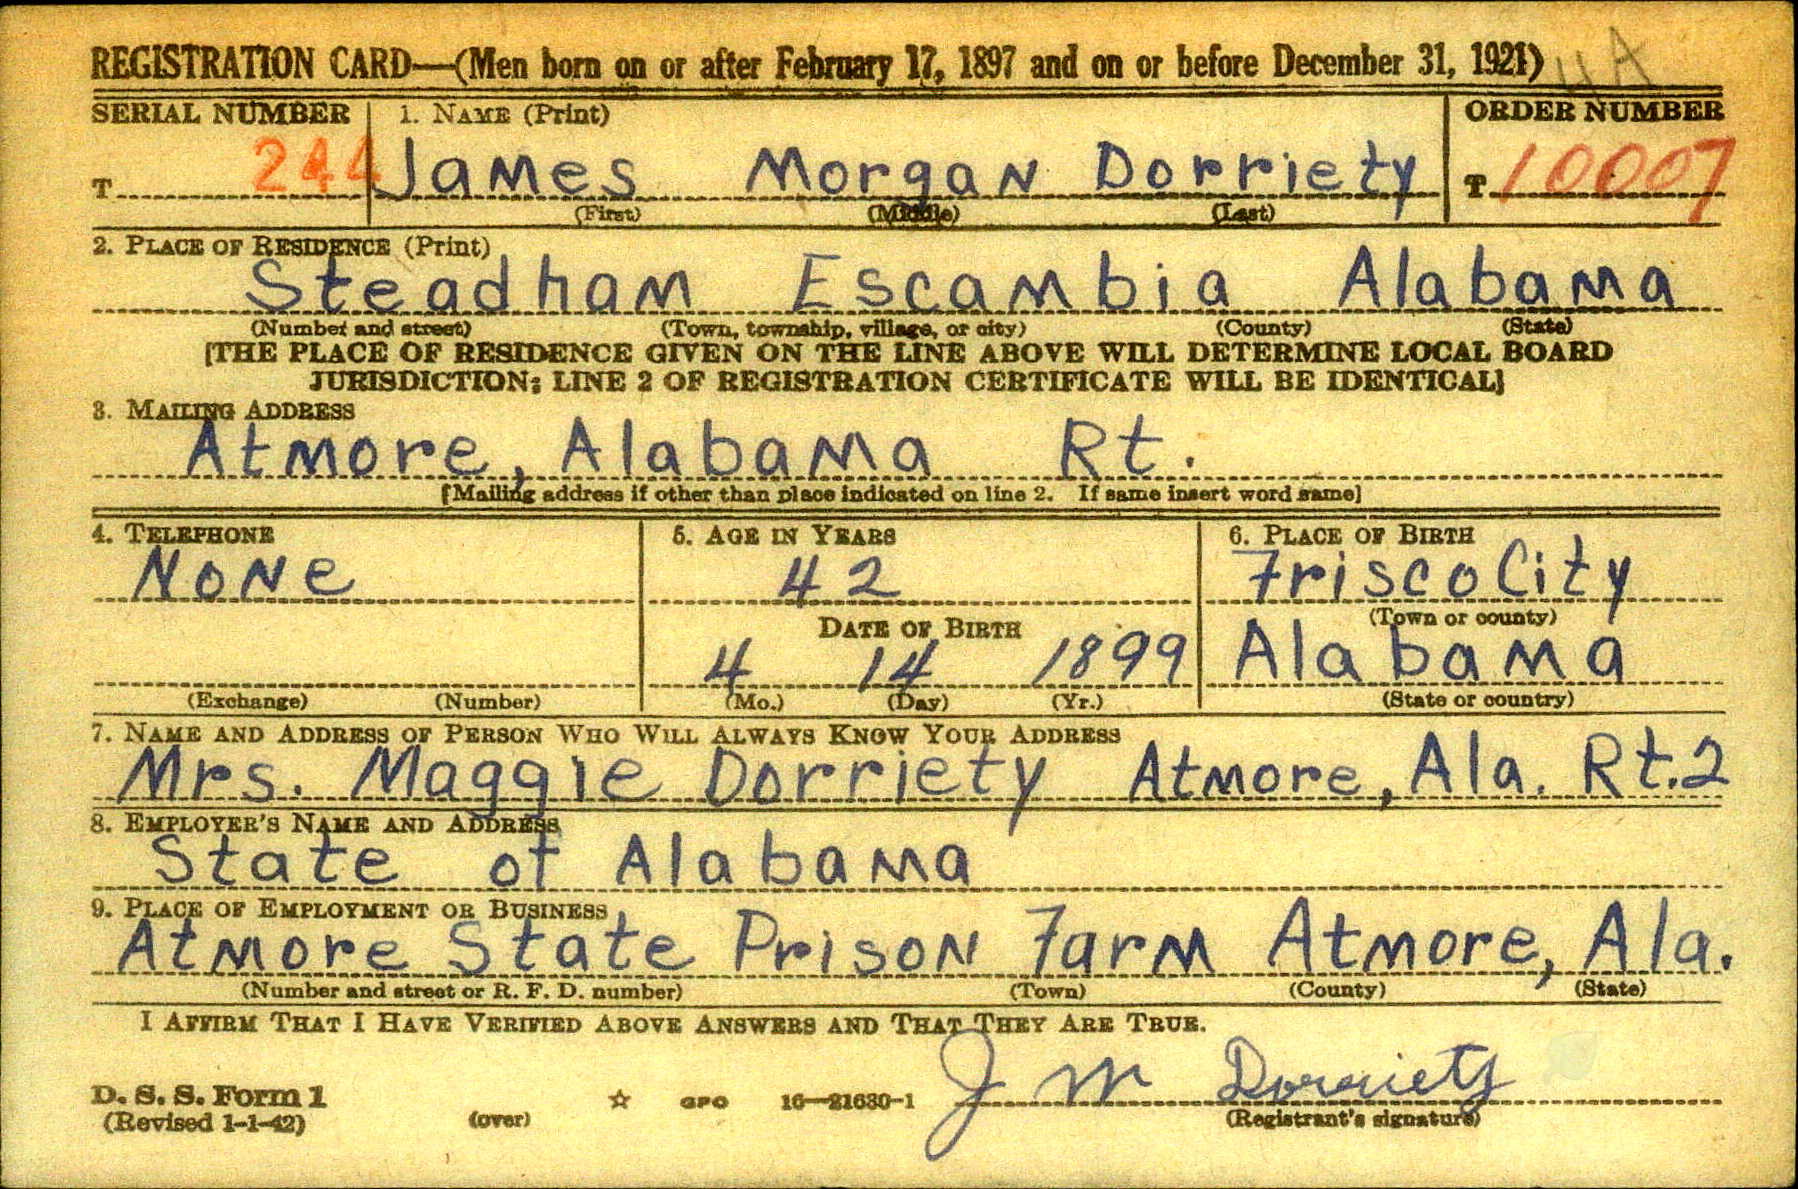 REGISTRATION CARD—(Men born on or after February 17, 1897 and on or before December 31, 1921)
SERIAL NUMBER 1. NAME (Print) ORDER NUMBER
T 244 James Morgan Dorriety T 10007
(First) (Middle) (Last)
2. PLACE OF RESIDENCE (Print)
Steadham Escambia Alabama
(Number and street) (Town, township, village, or city) (County) (State)
[THE PLACE OF RESIDENCE GIVEN ON THE LINE ABOVE WILL DETERMINE LOCAL BOARD
JURISDICTION; LINE 2 OF REGISTRATION CERTIFICATE WILL BE IDENTICAL]
3. MAILING ADDRESS
Atmore, Alabama Rt.
[Mailing address if other than place indicated on line 2. If same insert word same]
4. TELEPHONE 5. AGE IN YEARS 6. PLACE OF BIRTH
None 42 Frisco City
DATE OF BIRTH (Town or county)
4 14 1899 Alabama
(Exchange) (Number) (Mo.) (Day) (Yr.) (State or country)
7. NAME AND ADDRESS OF PERSON WHO WILL ALWAYS KNOW YOUR ADDRESS
Mrs. Maggie Dorriety Atmore, Ala. Rt. 2
8. EMPLOYER'S NAME AND ADDRESS
State of Alabama
9. PLACE OF EMPLOYMENT OR BUSINESS
Atmore State Prison Farm Atmore, Ala.
(Number and street or R. F. D. number) (Town) (County) (State)
I AFFIRM THAT I HAVE VERIFIED ABOVE ANSWERS AND THAT THEY ARE TRUE.
J M Dorriety
D. S. S. Form 1 ☆ GPO 16—21630-1
(Revised 1-1-42) (over) (Registrant's signature)